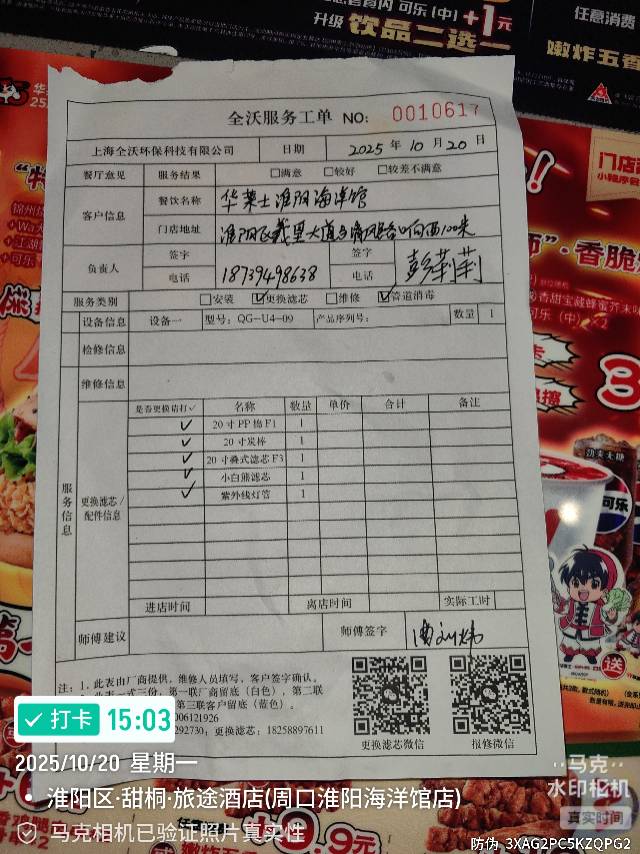 可乐(中)+1元
升级 饮品二选一
任意消费
嫩炸五香
门店
全沃服务工单 NO: 0010617
上海全沃环保科技有限公司 日期 2025 年 10 月 20 日
餐厅意见 服务结果 □满意 □较好 □较差不满意
客户信息 餐饮名称 华莱士淮阳海洋馆
门店地址
负责人 签字 签字
电话 18739498638 电话 彭莉莉
服务类别 □安装 ☑更换滤芯 □维修 ☑管道消毒
设备信息 设备一 型号: QG-U4-09 产品序列号: 数量 1
检修信息
维修信息
服务信息
更换滤芯/配件信息
是否更换请打✓ 名称 数量 单价 合计 备注
✓ 20寸PP棉F1 1
✓ 20寸炭棒 1
✓ 20寸叠式滤芯F3 1
✓ 小白熊滤芯 1
✓ 紫外线灯管 1
进店时间 离店时间 实际工时
师傅建议 师傅签字
注: 1. 此表由厂商提供,维修人员填写,客户签字确认。
此表一式三份,第一联厂商留底(白色),第二联
第三联客户留底(蓝色)。
006121926
292730; 更换滤芯: 18258897611
更换滤芯微信 报修微信
可乐
送
打卡 15:03
2025/10/20 星期一
淮阳区·甜桐·旅途酒店(周口淮阳海洋馆店)
马克相机已验证照片真实性
马克
水印相机
真实时间
防伪 3XAG2PC5KZQPG2